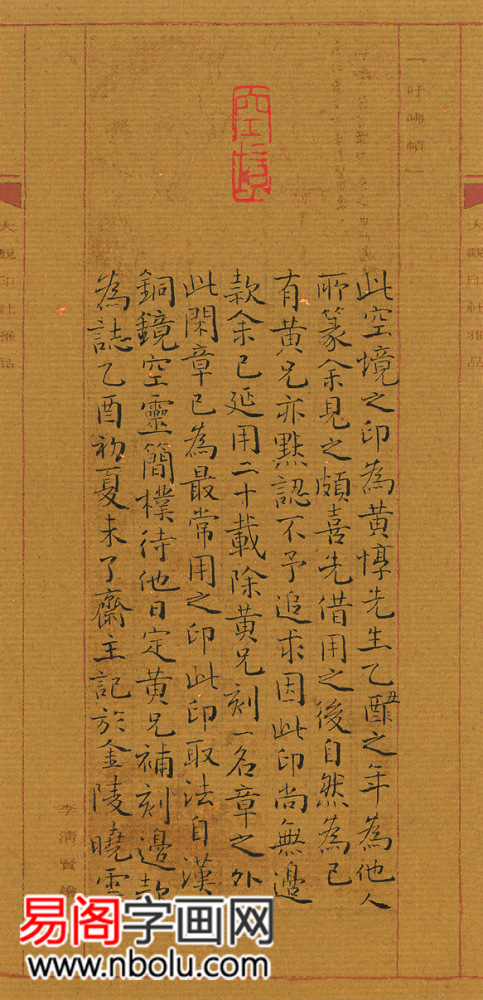 大觀印社雅品
空境
此空境之印為黃惇先生乙醜丑之年為他人
所篆余見之頗喜先借用之後自然為已
有黃兄亦默認不予追求因此印尚無邊
款余已延用二十載除黃兄刻一名章之外
此閑章已為最常用之印此印取法自漢
銅鏡空靈簡樸待他日定黃兄補刻邊款
為誌乙酉初夏未了齋主記於金陵曉雲
李清賢
大觀印社雅品
易阁字画网
www.nbolu.com